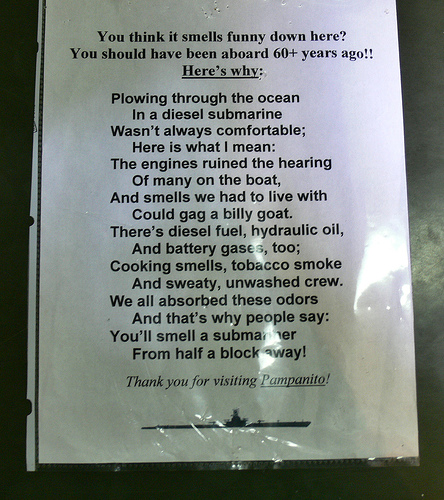 You think it smells funny down here?
You should have been aboard 60+ years ago!!
Here's why:
Plowing through the ocean
In a diesel submarine
Wasn't always comfortable;
Here is what I mean:
The engines ruined the hearing
Of many on the boat,
And smells we had to live with
Could gag a billy goat.
There's diesel fuel, hydraulic oil,
And battery gases, too;
Cooking smells, tobacco smoke
And sweaty, unwashed crew.
We all absorbed these odors
And that's why people say:
You'll smell a submariner
From half a block away!
Thank you for visiting Pampanito!